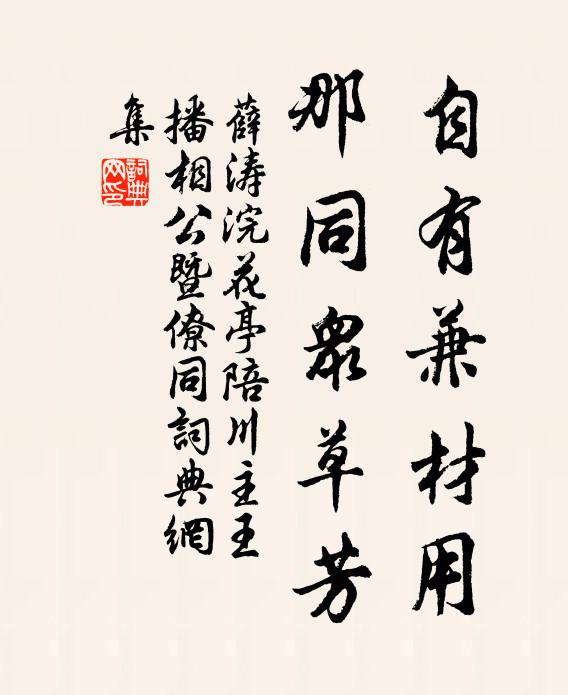 自有兼材用
那同眾草芳
薛涛浣花亭陪川主王
播相公暨僚同詞典網
集
詞典
网印